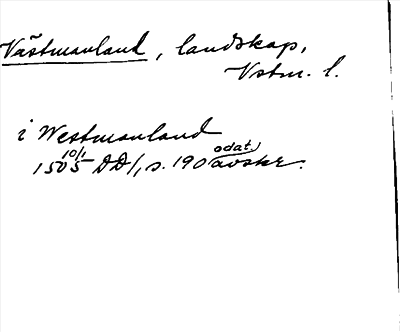 Västmanland, landskap,
Vstm. l.
i Westmanland
1505 10/1 DD1, s. 190 odat. avskr.